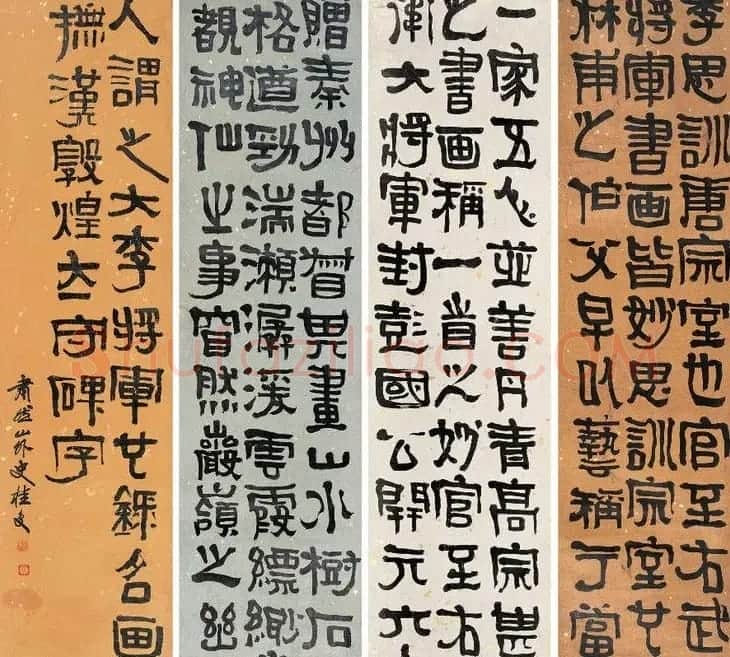 李思訓唐宗室也官至右武
將軍書画皆妙思訓宗室
林甫之伯父早以藝稱于當
一家五人並善丹青高宗甚
之書画稱一旹之妙官至右
衛大將軍封彭國公開元六
贈秦州都督其畫山水樹石
格遒勁湍瀬潺湲雲霞縹緲
覩神仙之事窅然巖嶺之幽
人謂之大李將軍也錄名画
撫漢敦煌太守碑字
肅然山外史桂馥
Shufaziliao.COM